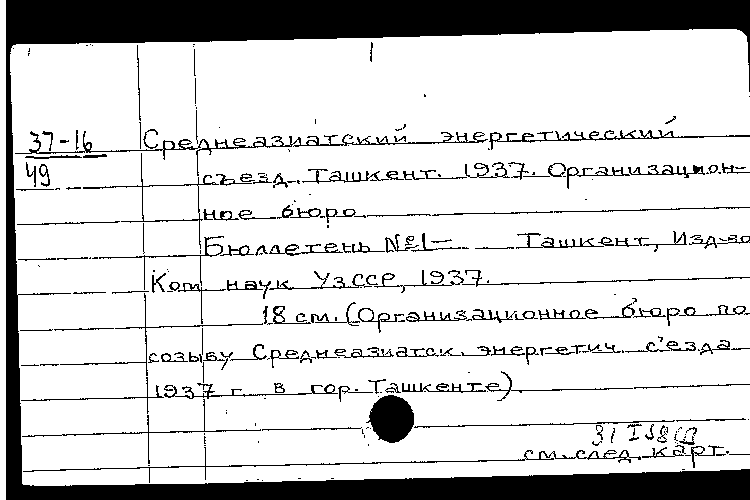 37-16 Среднеазиатский энергетический
49 съезд. Ташкент. 1937. Организацион-
ное бюро.
Бюллетень №1— Ташкент, Изд-во
Ком. наук УзССР, 1937.
18 см. (Организационное бюро по
созыву Среднеазиатск. энергетич. с'езда
1937 г. в гор. Ташкенте).
см. след. карт.